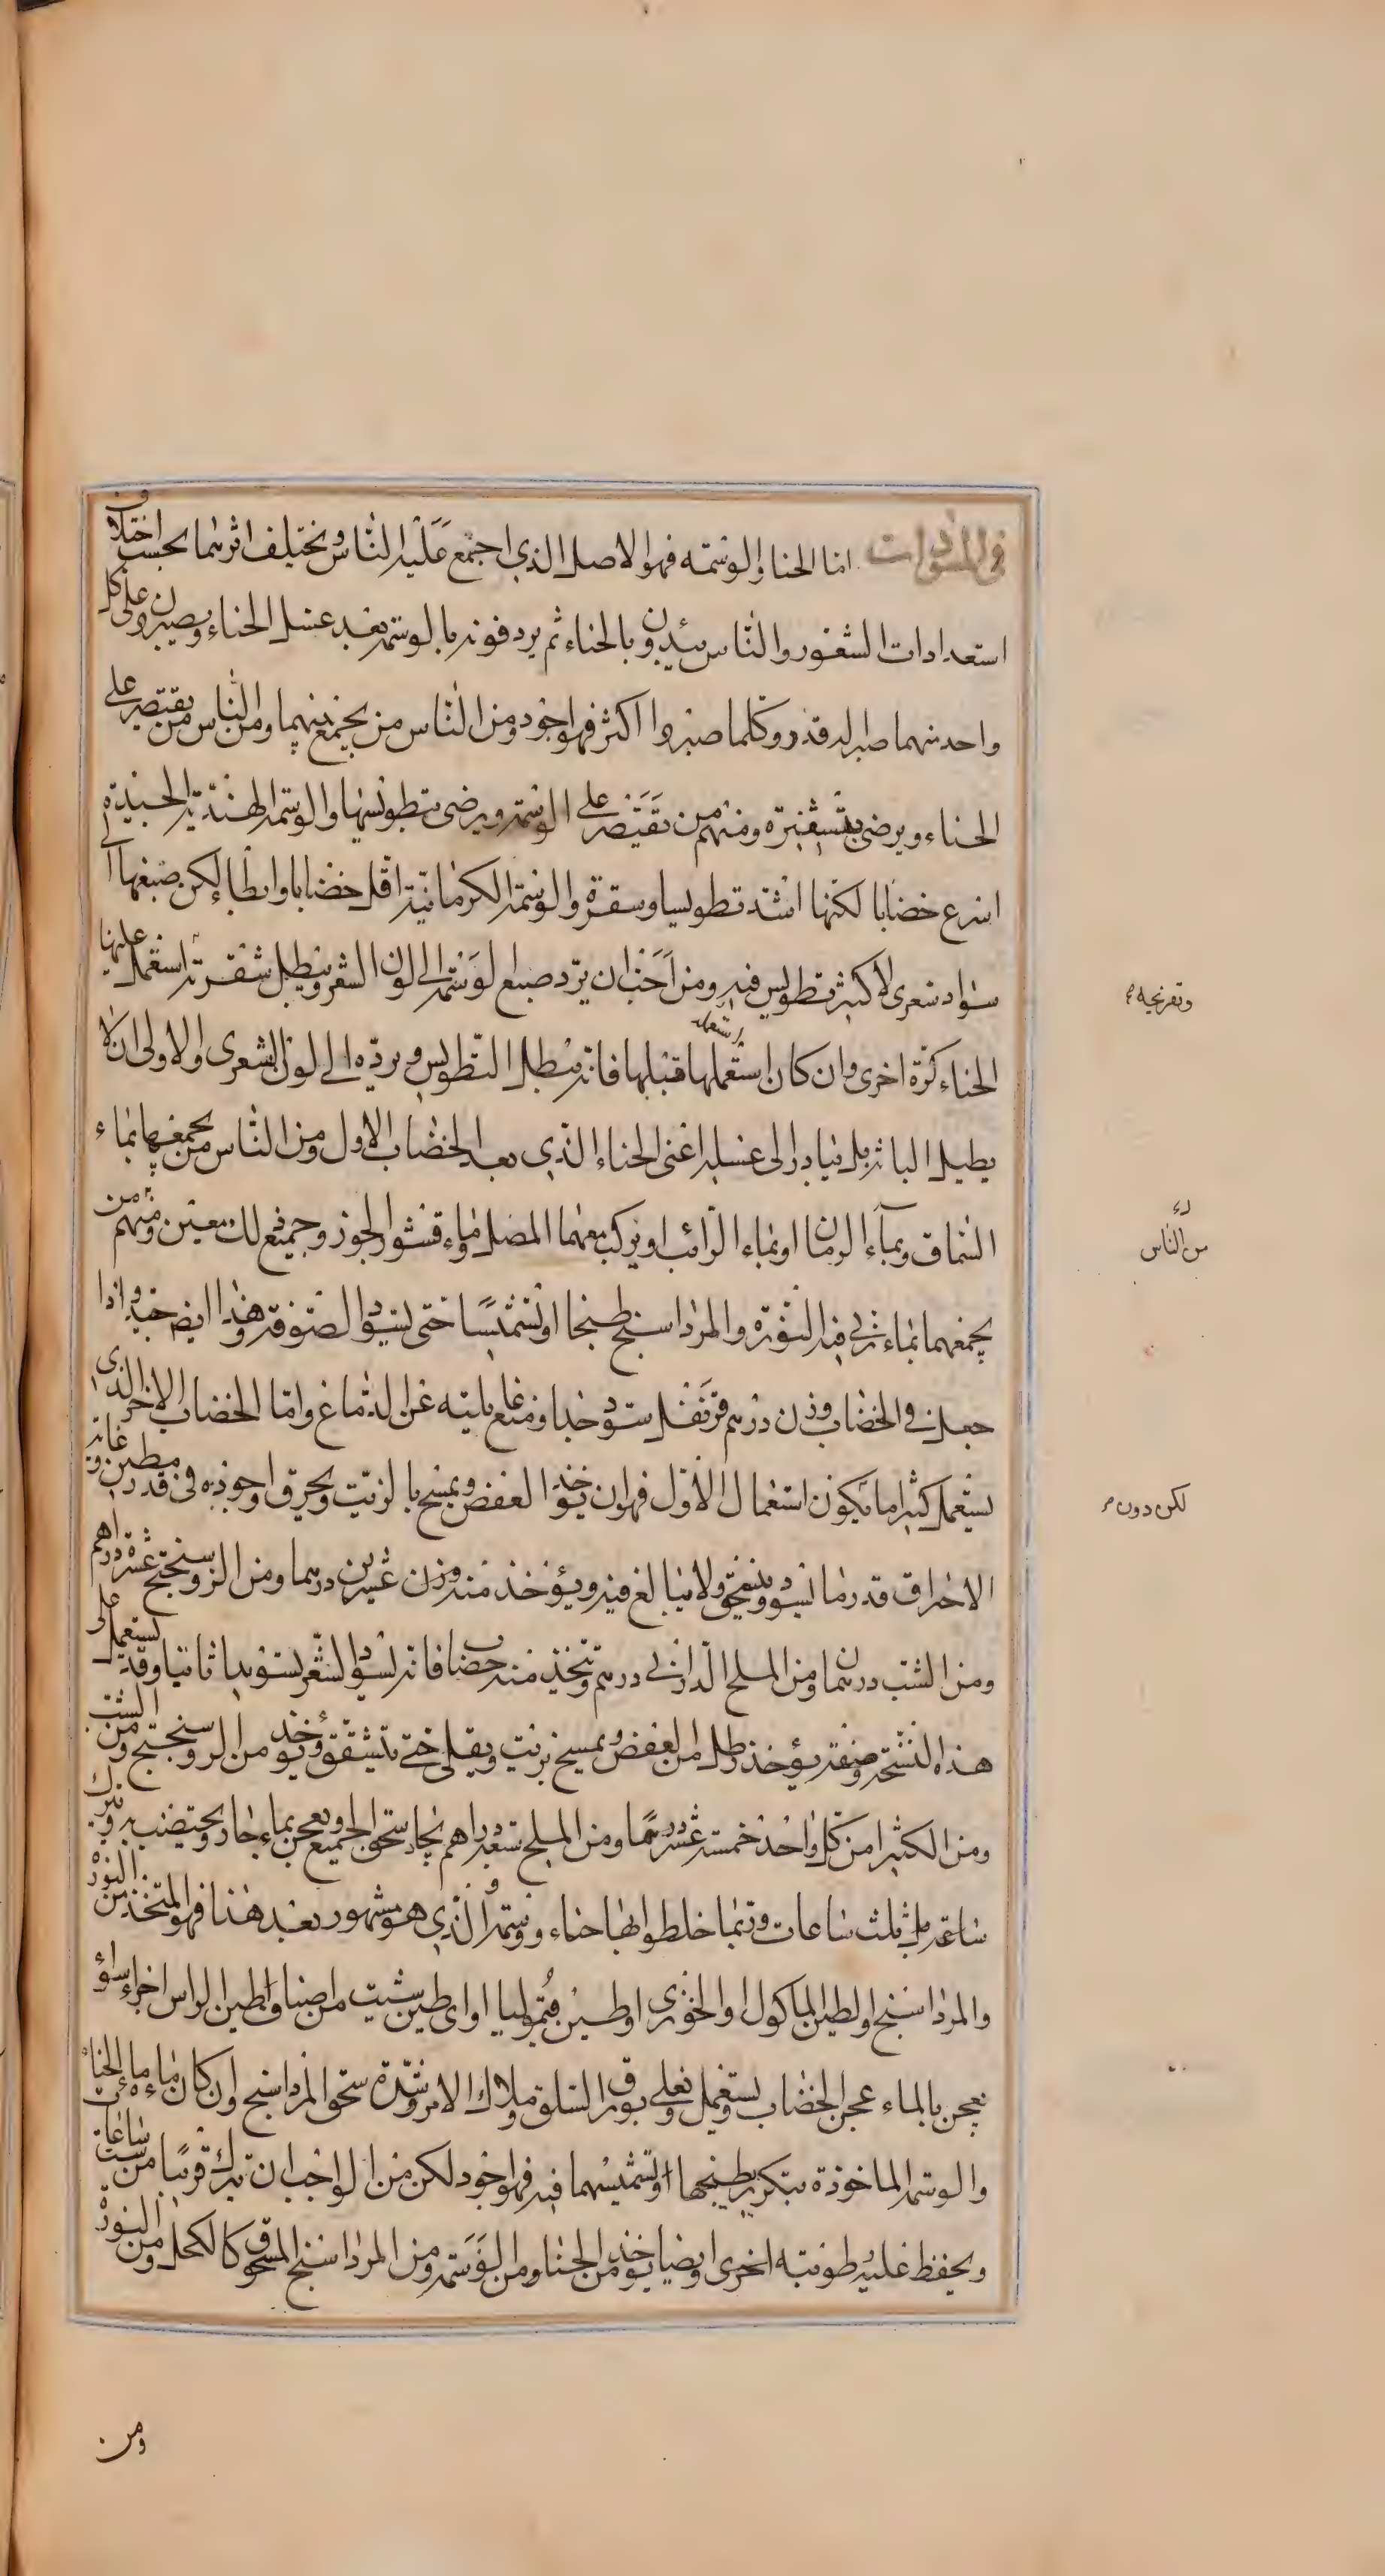 في المسودات اما الحنا والوسمة فهو الاصل الذي اجتمع عليه الناس ويختلف اثرهما بحسب اختلاف
استعدادات الشعور والناس يبتدون بالحناء ثم يردفونه بالوسمة بعد غسل الحناء ويصبرون على كل
واحد منهما صبرا له قدر وكلما صبروا اكثر فهو اجود ومن الناس من يجمع بينهما ومن الناس من يقتصر على
الحناء ويرضى بتشقيره ومنهم من يقتصر على الوسمة ويرضى بتطويسها والوسمة الهندية الجيدة
اسرع خضابا لكنها اشد تطويسا وسقرة والوسمة الكرمانية اقل خضابا وابطاء لكن صبغها الى
سواد شعرى لا كثير تطويس فيه ومن احب ان يرد صبغ الوسمة الى لون الشعر ويبطل شقرته استعمل عليها
الحناء كرة اخرى وان كان استعملها قبلها فانه يبطل التطويس ويرده الى لون الشعرى والاولى ان لا
يطيل الباثه بل يبادر الى غسله اعنى الحناء الذي بعد الخضاب الاول ومن الناس من يجمعهما بماء
السماق وبماء الرمان او بماء الرائب او يركب معهما المصل وماء قشور الجوز وجميع ذلك معين ومنهم من
يجمعهما بماء ربي فيه النورة والمرداسنج طبخا او تشميسا حتى يسود الصوفة وهذا ايضا جيد واذا
جعل في الخضاب وزن درهم قرنفل سود جدا ومنع غايلته عن الدماغ واما الخضاب الاخر الذي
يستعمل كثيرا ما يكون استعمال الاول فهو ان يؤخذ العفص ويمسح بالزيت ويحرق واجوده في قدر مطين وغاية
الاحراق قدر ما يسود وينسحق ولا يبالغ فيه ويؤخذ منه وزن عشرين درهما ومن الروسختج عشرة دراهم
ومن الشب درهمان ومن الملح الداراني درهم ويتخذ منه خضاب فانه يسود الشعر تسويدا ثانيا وقد يستعمل على
هذه النسخة وصفته يؤخذ رطل من العفص ويمسح بزيت ويقلى حتى يتشقق ويؤخذ من الروسختج ومن الشب
ومن الكثيرا من كل واحد خمسة عشر درهما ومن الملح سبعة دراهم يجاد سحق الجميع ويعجن بماء حار ويختضب به ويترك
ساعة بل ثلث ساعات وربما خلطوا بها حناء ووسمة والذي هو مشهور بعد هذا فهو المتخذ من النورة
والمرداسنج والطين الماكول او الخوزى او طين قيموليا او اى طين شيت من اصناف اطين الراس اجزاء سواء
يعجن بالماء عجن الخضاب ويستعمل ويعلى بورق السلق وملاك الامر شدة سحق المرداسنج وان كان ماءه ماء الحناء
والوسمة الماخوذة بتكرير طبخها او تشميسهما فيه فهو اجود لكن من الواجب ان يترك قريبا من ست ساعات
ويحفظ عليه رطوبته اخرى وايضا يؤخذ من الحنا ومن الوسمة ومن المرداسنج المسحوق كالكحل ومن النورة
ومن
استعمله
وتفرنجيه
من الناس
لكن دون